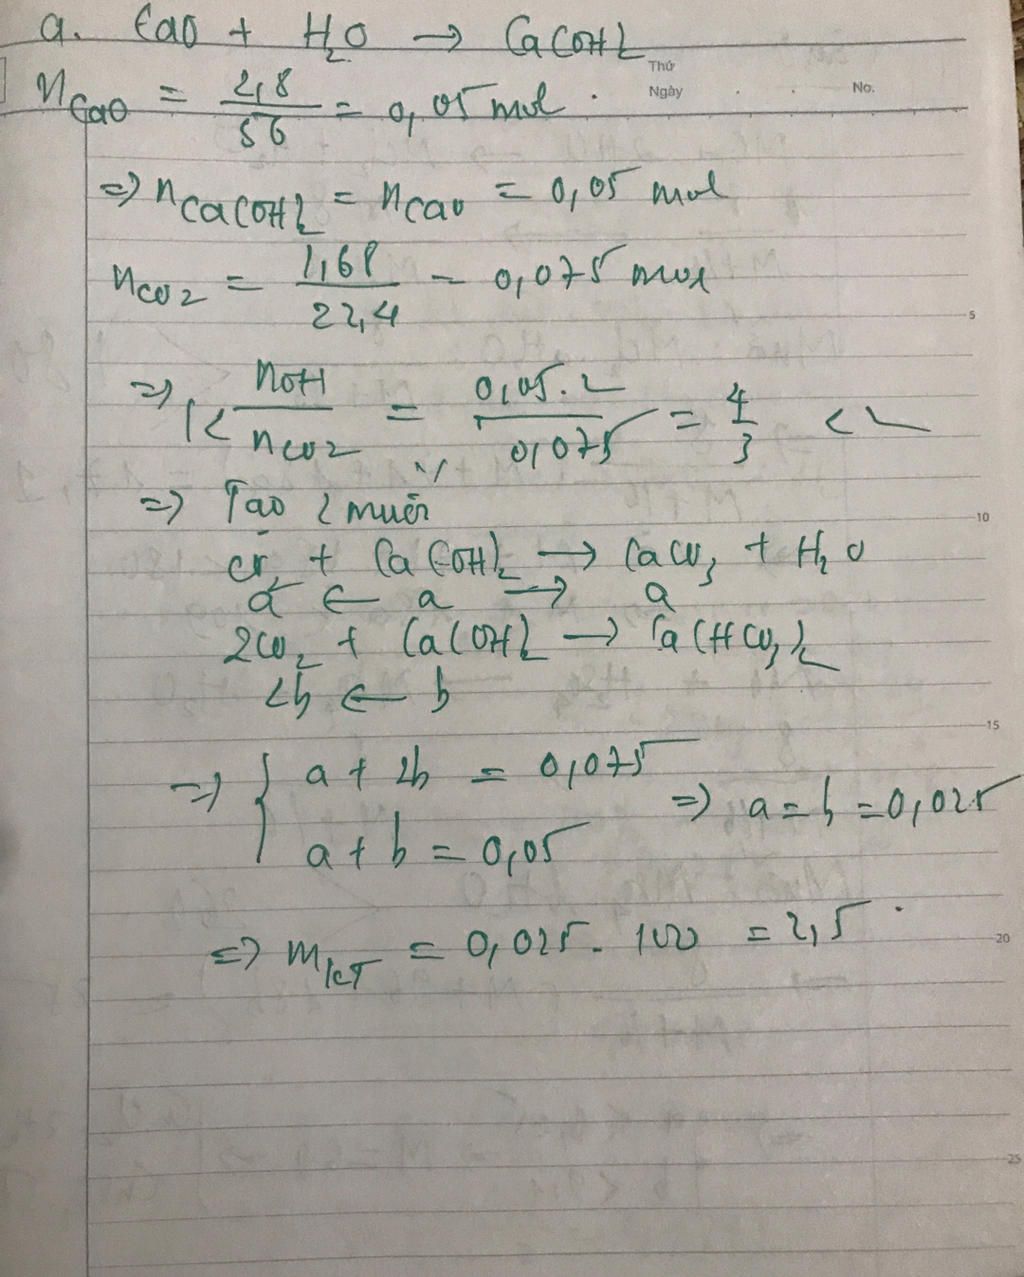 a. CaO + H₂O → Ca(OH)₂
Thứ
Ngày No.
nCaO = 2,8/56 = 0,05 mol.
=> nCa(OH)₂ = nCaO = 0,05 mol
nCO₂ = 1,68/22,4 = 0,075 mol
5
=> 1 < nOH/nCO₂ = 0,05.2/0,075 = 4/3 < 2
=> Tạo 2 muối
10
CO₂ + Ca(OH)₂ → CaCO₃ + H₂O
a ← a → a
2CO₂ + Ca(OH)₂ → Ca(HCO₃)₂
2b ← b
15
=> { a + 2b = 0,075
a + b = 0,05 => a = b = 0,025
=> mKT = 0,025. 100 = 2,5.
20
25